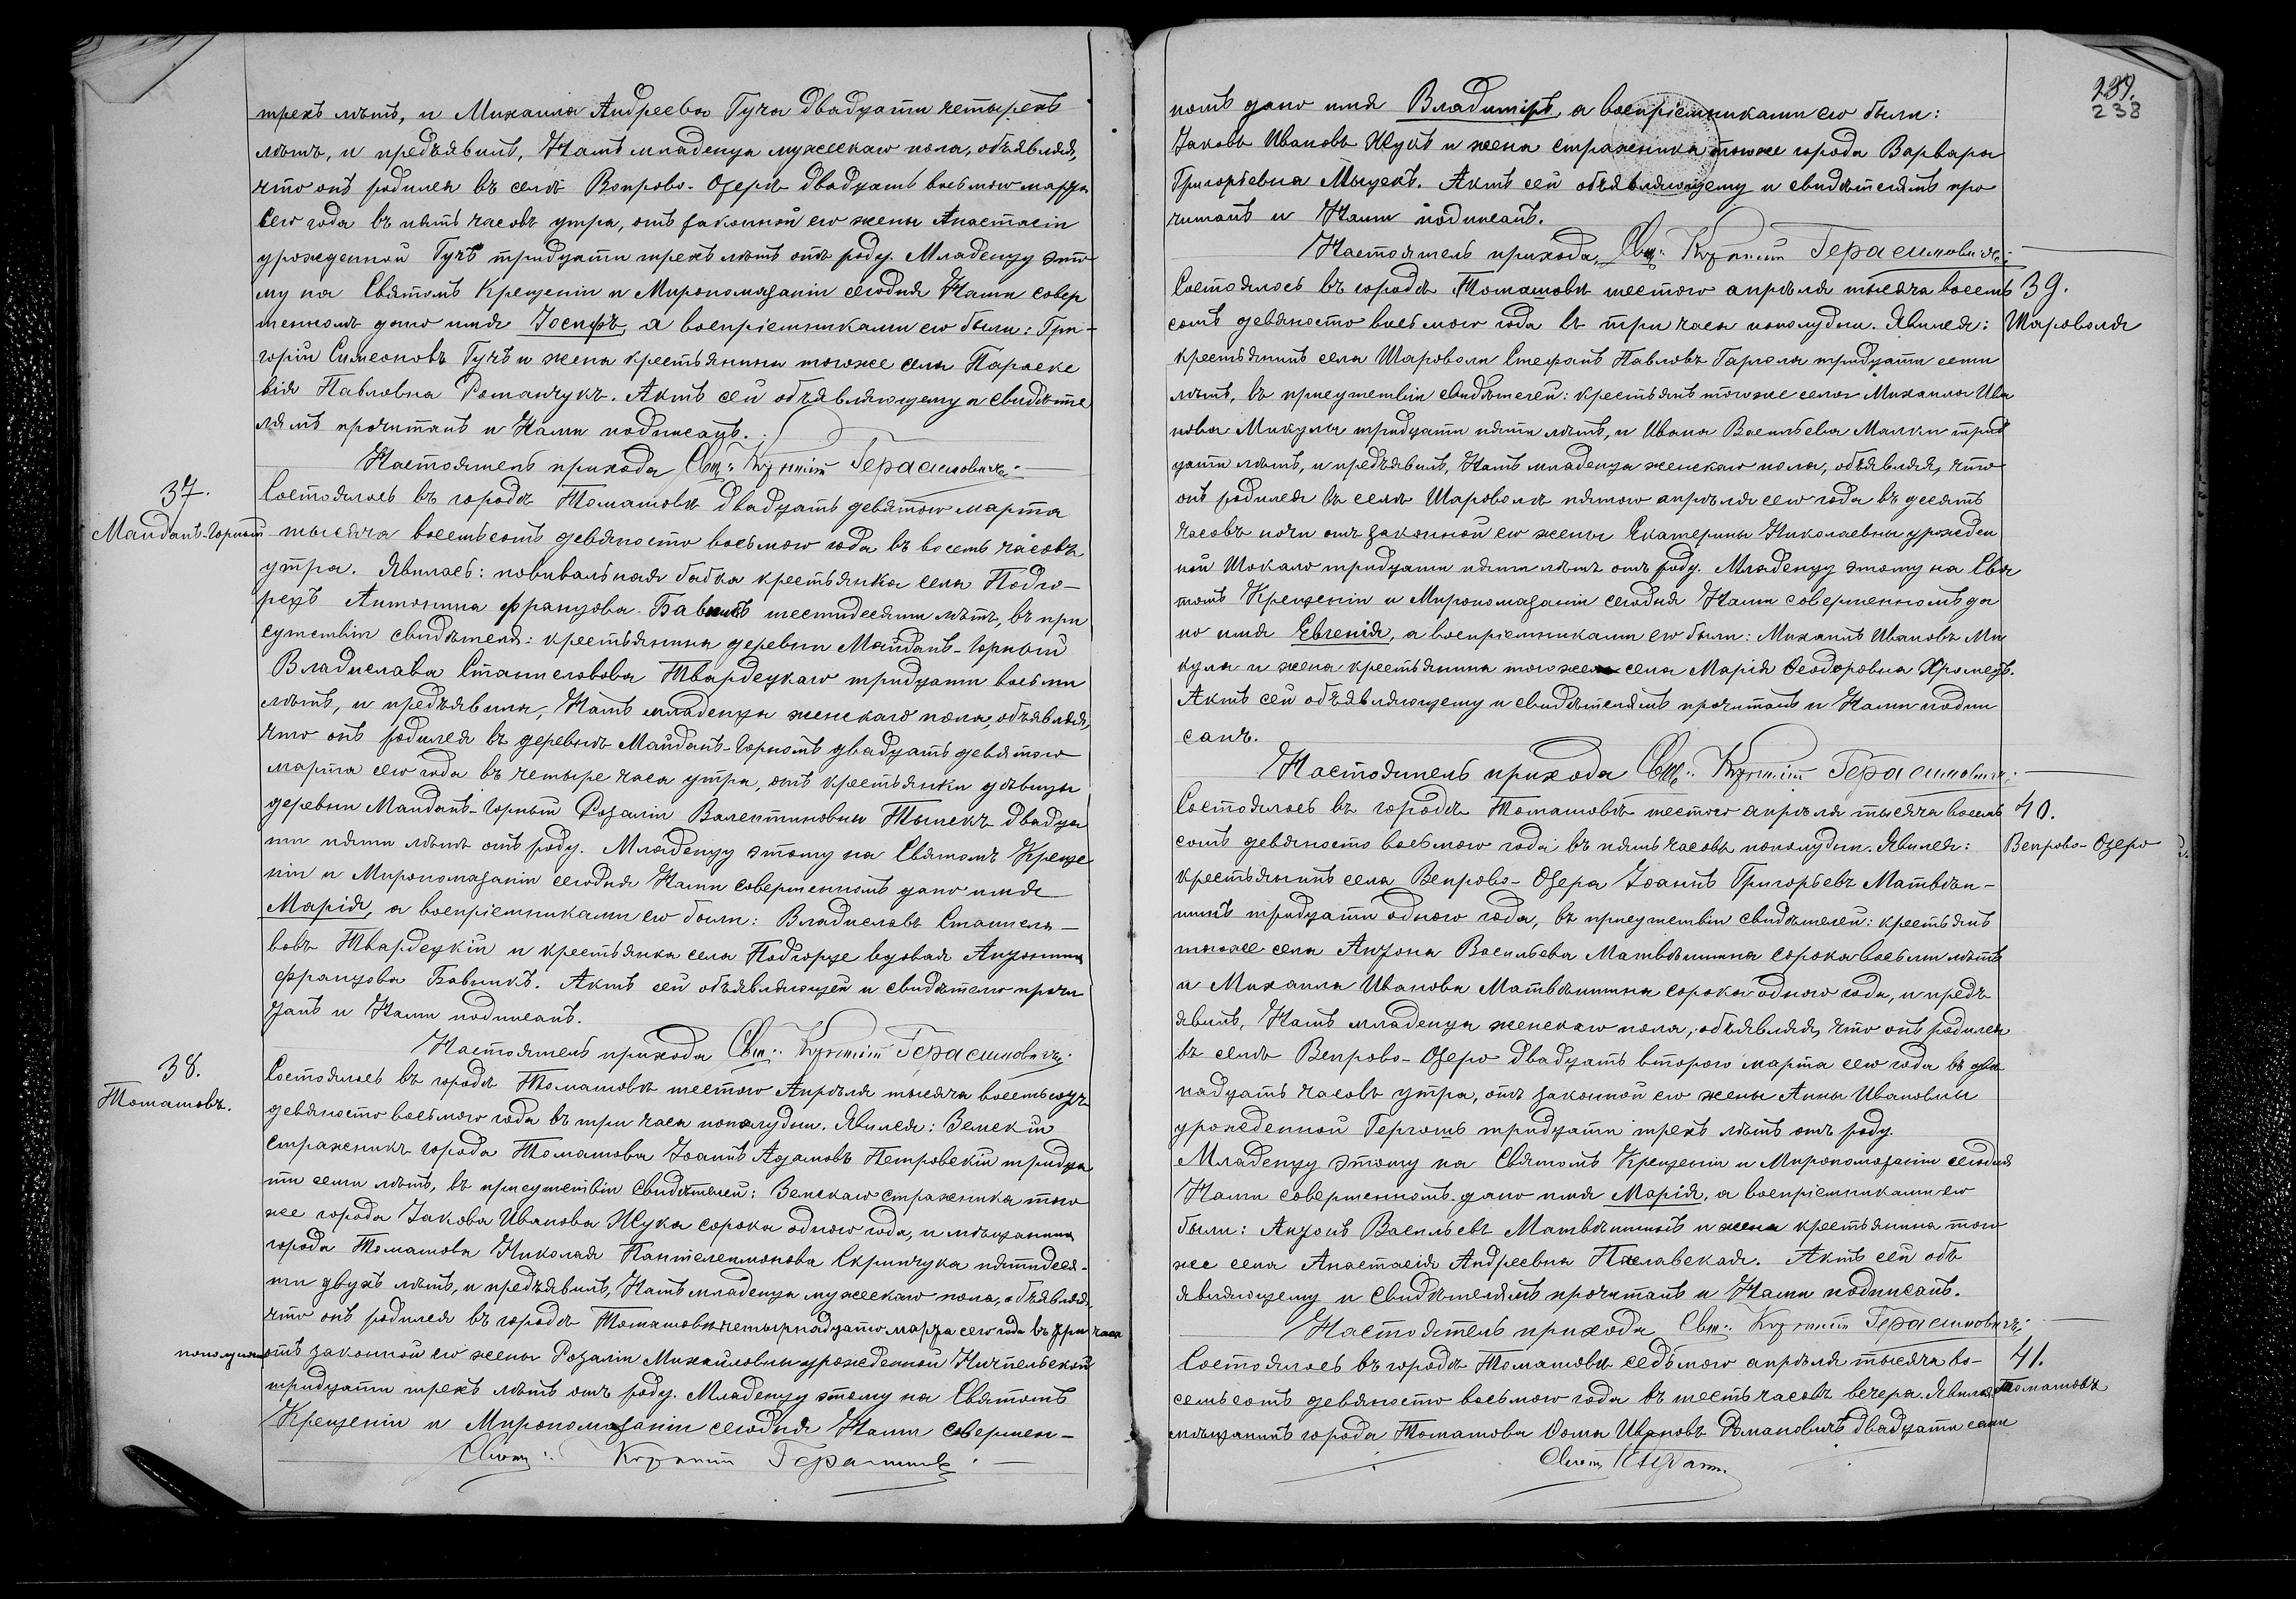 трехъ лѣтъ, и Михаила Андреева Гуча двадцати четырехъ
лѣтъ, и предъявилъ, Намъ младенца мужескаго пола, объявляя,
что онъ родился въ селѣ Вепрово-Озерѣ двадцать восьмого марта
сего года въ пять часовъ утра, отъ законной его жены Анастасіи
урожденной Гучъ тридцати трехъ лѣтъ отъ роду. Младенцу это-
му на Святомъ Крещеніи и Миропомазаніи сегодня Нами совер
шенномъ дано имя Іосифъ, а воспріемниками его были: Гри-
горій Симеоновъ Гучъ и жена крестьянина тогоже села Параске
вія Павловна Романчукъ. Актъ сей объявляющему и свидѣте
лямъ прочитанъ и Нами подписанъ.
Настоятель прихода Свщ: Герасимовичъ
37.
Майданъ-Горный
Состоялось въ городѣ Томашовѣ двадцать девятого марта
тысяча восемьсотъ девяносто восьмого года въ восемь часовъ
утра. Явилась: повивальная бабка крестьянка села Подго-
рецъ Антонина Францова Бавникъ шестидесяти лѣтъ, въ при
сутствіи свидѣтеля: крестьянина деревни Майданъ-Горный
Владислава Станиславова Твардецкаго тридцати восьми
лѣтъ, и предъявила, Намъ младенца женскаго пола, объявляя,
что онъ родился въ деревнѣ Майданъ-Горномъ двадцать девятого
марта сего года въ четыре часа утра, отъ крестьянки дѣвицы
деревни Майданъ-Горный Розаліи Валентиновны Тылекъ двадца
ти пяти лѣтъ отъ роду. Младенцу этому на Святомъ Креще
ніи и Миропомазаніи сегодня Нами совершенномъ дано имя
Марія, а воспріемниками его были: Владиславъ Станисла-
вовъ Твардецкій и крестьянка села Подгорце вдовая Антонина
Францова Бавникъ. Актъ сей объявляющей и свидѣтелю прочи
танъ и Нами подписанъ.
Настоятель прихода Свщ: Герасимовичъ
38.
Томашовъ.
Состоялось въ городѣ Томашовѣ шестого Апрѣля тысяча восемьсотъ
девяносто восьмого года въ три часа пополудни. Явился: Земскій
стражникъ города Томашова Іоаннъ Адамовъ Петровскій тридца
ти семи лѣтъ, въ присутствіи свидѣтелей: Земскаго стражника того
же города Іакова Иванова Жука сорока одного года, и мѣщанина
города Томашова Николая Пантелеимонова Скринчука пятидеся-
ти двухъ лѣтъ, и предъявилъ, Намъ младенца мужескаго пола, объявляя,
что онъ родился въ городѣ Томашовѣ четырнадцатого марта сего года въ три часа
пополудни отъ законной его жены Розаліи Михайловны урожденной Кительской
тридцати трехъ лѣтъ отъ роду. Младенцу этому на Святомъ
Крещеніи и Миропомазаніи сегодня Нами совершен-
Свящ: Герасимовичъ
239.
238
номъ дано имя Владиміръ, а воспріемниками его были:
Іаковъ Ивановъ Жукъ и жена стражника тогоже города Варвара
Григорьевна Мыцекъ. Актъ сей объявляющему и свидѣтелямъ про
читанъ и Нами подписанъ.
Настоятель прихода, Свщ: Герасимовичъ
Состоялось въ городѣ Томашовѣ шестого апрѣля тысяча восемь
39.
сотъ девяносто восьмого года въ три часа пополудни. Явился:
Шароволя
крестьянинъ села Шароволи Стефанъ Павловъ Гаргола тридцати семи
лѣтъ, въ присутствіи свидѣтелей: крестьянъ тогоже села Михаила Ива
нова Микулы тридцати пяти лѣтъ, и Ивана Васильева Малки трид
цати лѣтъ, и предъявилъ, Намъ младенца женскаго пола, объявляя, что
онъ родился въ селѣ Шароволѣ пятого апрѣля сего года въ десять
часовъ ночи отъ законной его жены Екатерины Николаевны урожден
ной Шокало тридцати пяти лѣтъ отъ роду. Младенцу этому на Свя
томъ Крещеніи и Миропомазаніи сегодня Нами совершенномъ да
но имя Евгенія, а воспріемниками его были: Михаилъ Ивановъ Ми
кула и жена крестьянина тогоже села Марія Ѳеодоровна Хромецъ.
Актъ сей объявляющему и свидѣтелямъ прочитанъ и Нами подпи
санъ.
Настоятель прихода Свщ: Герасимовичъ
Состоялось въ городѣ Томашовѣ шестого апрѣля тысяча восемь
40.
сотъ девяносто восьмого года въ пять часовъ пополудни. Явился:
Вепрово-Озеро
крестьянинъ села Вепрово-Озера Іоаннъ Григорьевъ Матвѣи-
шинъ тридцати одного года, въ присутствіи свидѣтелей: крестьянъ
тогоже села Антона Васильева Матвѣишина сорока восьми лѣтъ
и Михаила Иванова Матвѣишина сорока одного года, и предъ
явилъ, Намъ младенца женскаго пола, объявляя, что онъ родился
въ селѣ Вепрово-Озеро двадцать второго марта сего года въ две
надцать часовъ утра, отъ законной его жены Анны Ивановны
урожденной Гергошъ тридцати трехъ лѣтъ отъ роду.
Младенцу этому на Святомъ Крещеніи и Миропомазаніи сегодня
Нами совершенномъ дано имя Марія, а воспріемниками его
были: Антонъ Васильевъ Матвѣишинъ и жена крестьянина того
же села Анастасія Андреевна Паславская. Актъ сей объ
являющему и свидѣтелямъ прочитанъ и Нами подписанъ.
Настоятель прихода Свщ: Герасимовичъ
Состоялось въ городѣ Томашовѣ седьмого апрѣля тысяча во-
41.
семьсотъ девяносто восьмого года въ шесть часовъ вечера. Явился:
Томашовъ
мѣщанинъ города Томашова Ѳома Ивановъ Романовичъ двадцати семи
Свящ: